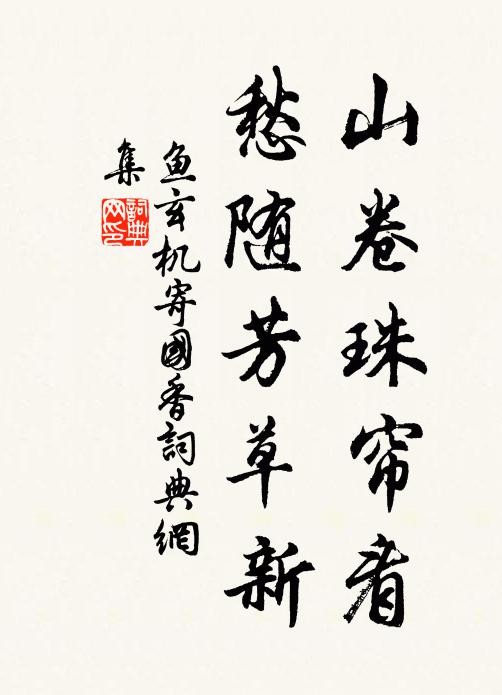 山卷珠帘看
愁随芳草新
鱼玄机寄國香詞典網
集
詞典
网印